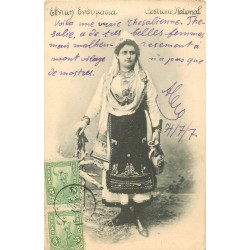 Εθνική Ενδυμασία Costume National
Voilà une vraie Thesalienne. The-
salie, a de très belles femmes
mais malheureusement à
mont village n'a pas que
de mostres.
7/1/77